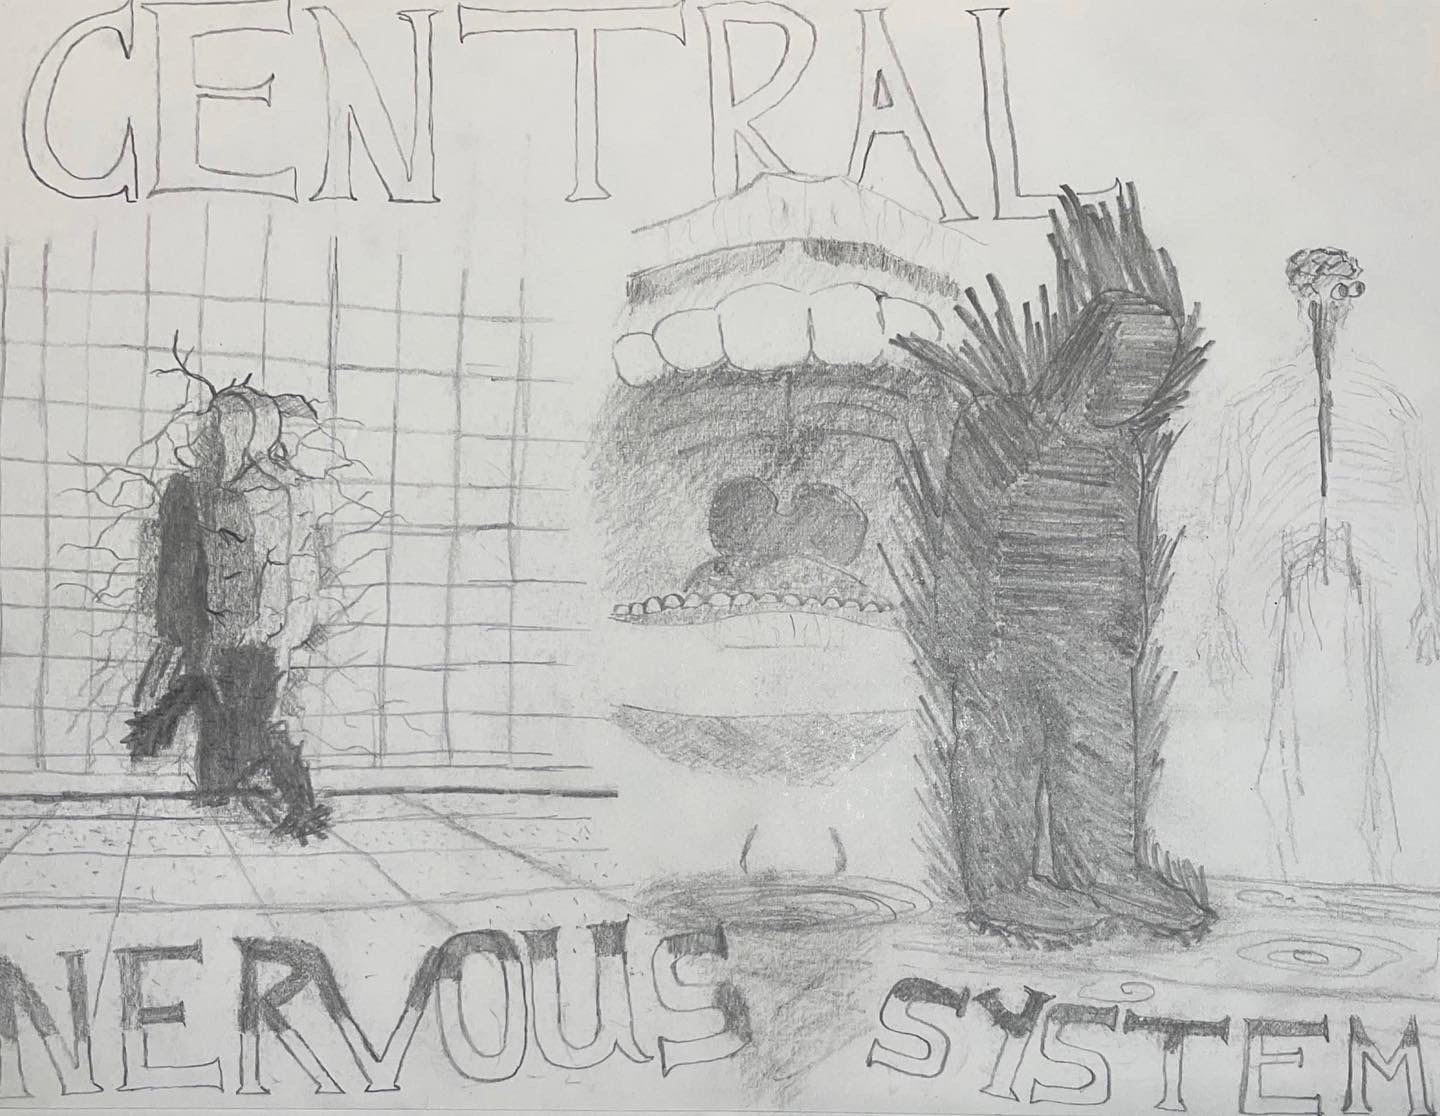 CENTRAL
NERVOUS SYSTEM